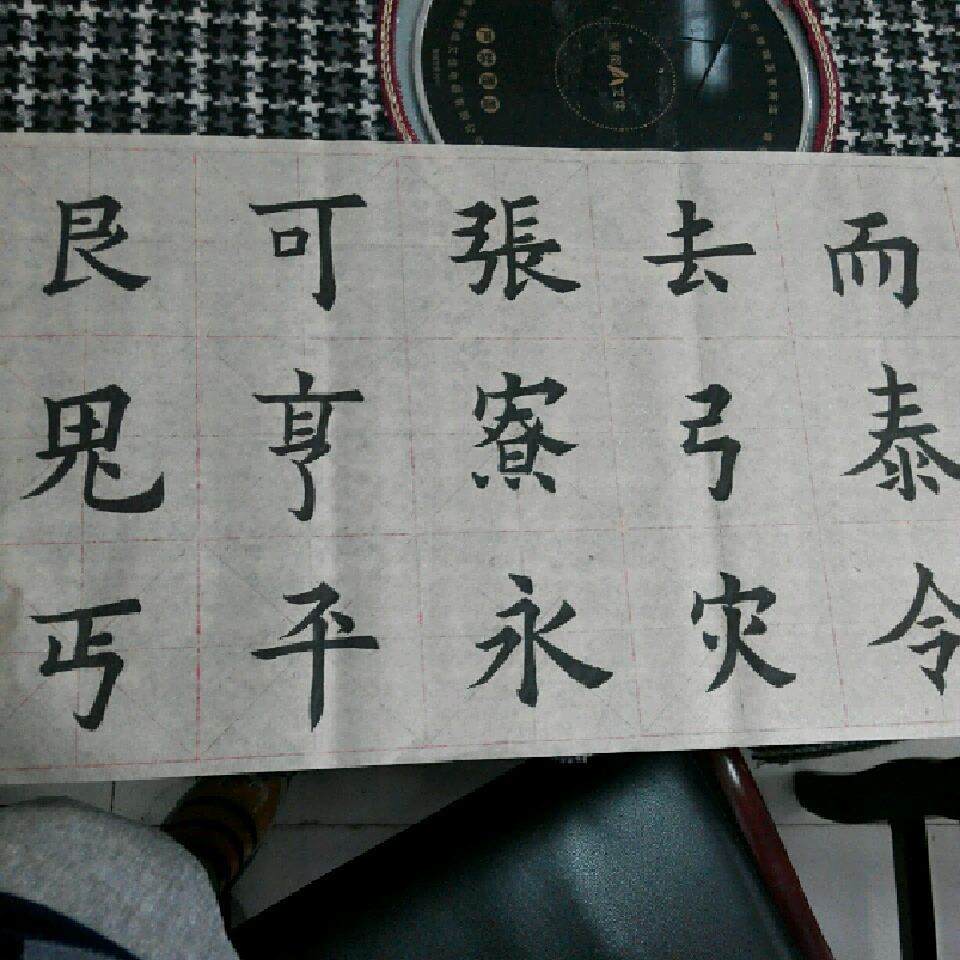 艮可張去而
亨寮弓泰
丐平永灾令